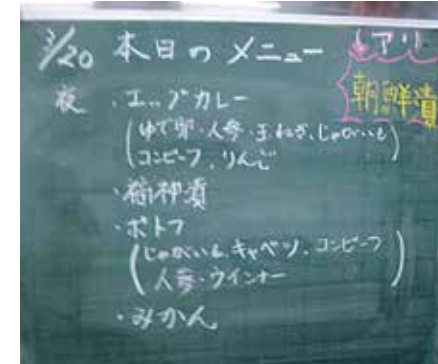 3/20 本日のメニュー
アリ
朝鮮漬
夜 ・エッグカレー
(ゆで卵・人参・玉ねぎ、じゃがいも
コンビーフ、りんご)
・福神漬
・ポトフ
(じゃがいも、キャベツ、コンビーフ
人参・ウインナー)
・みかん